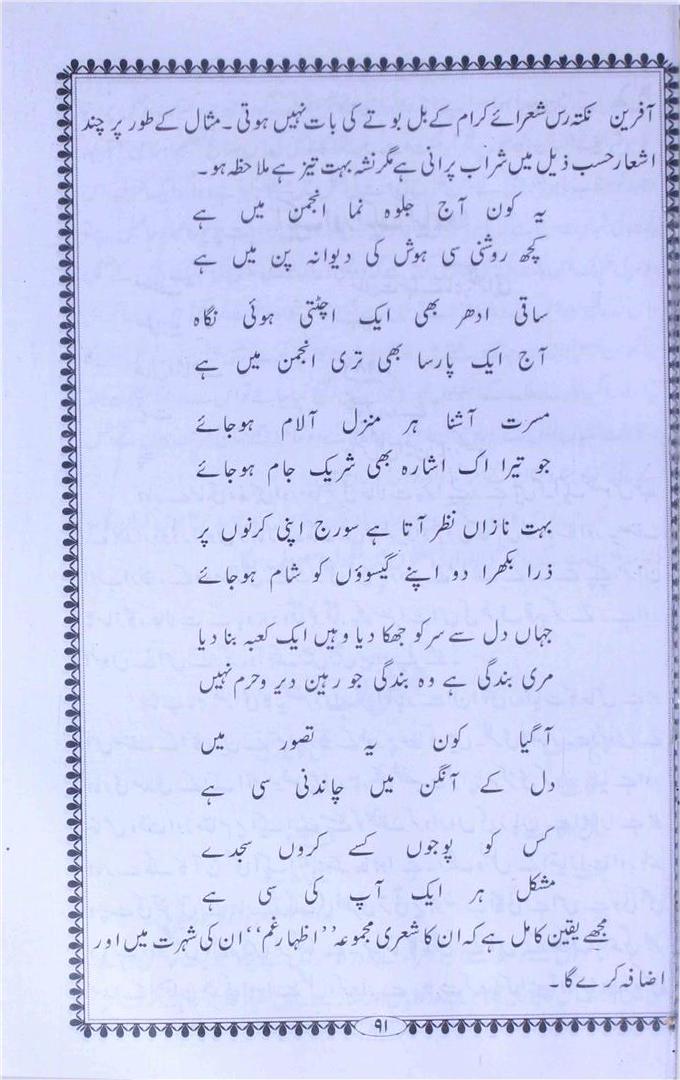 آفریں نکتہ رس شعرائے کرام کے بل بوتے کی بات نہیں ہوتی۔ مثال کے طور پر چند
اشعار حسب ذیل میں شراب پرانی ہے مگر نشہ بہت تیز ہے ملاحظہ ہو۔
یہ کون آج جلوہ نما انجمن میں ہے
کچھ روشنی سی ہوش کی دیوانہ پن میں ہے
ساقی ادھر بھی ایک اچٹتی ہوئی نگاہ
آج ایک پارسا بھی تری انجمن میں ہے
مسرت آشنا ہر منزل آلام ہوجائے
جو تیرا اک اشارہ بھی شریک جام ہوجائے
بہت نازاں نظر آتا ہے سورج اپنی کرنوں پر
ذرا بکھرا دو اپنے گیسوؤں کو شام ہوجائے
جہاں دل سے سر کو جھکا دیا وہیں ایک کعبہ بنا دیا
مری بندگی ہے وہ بندگی جو رہین دیر وحرم نہیں
آگیا کون یہ تصور میں
دل کے آنگن میں چاندنی سی ہے
کس کو پوجوں کسے کروں سجدے
مشکل ہر ایک آپ کی سی ہے
مجھے یقین کامل ہے کہ ان کا شعری مجموعہ ’’اظہار غم‘‘ ان کی شہرت میں اور
اضافہ کرے گا۔
۹۱